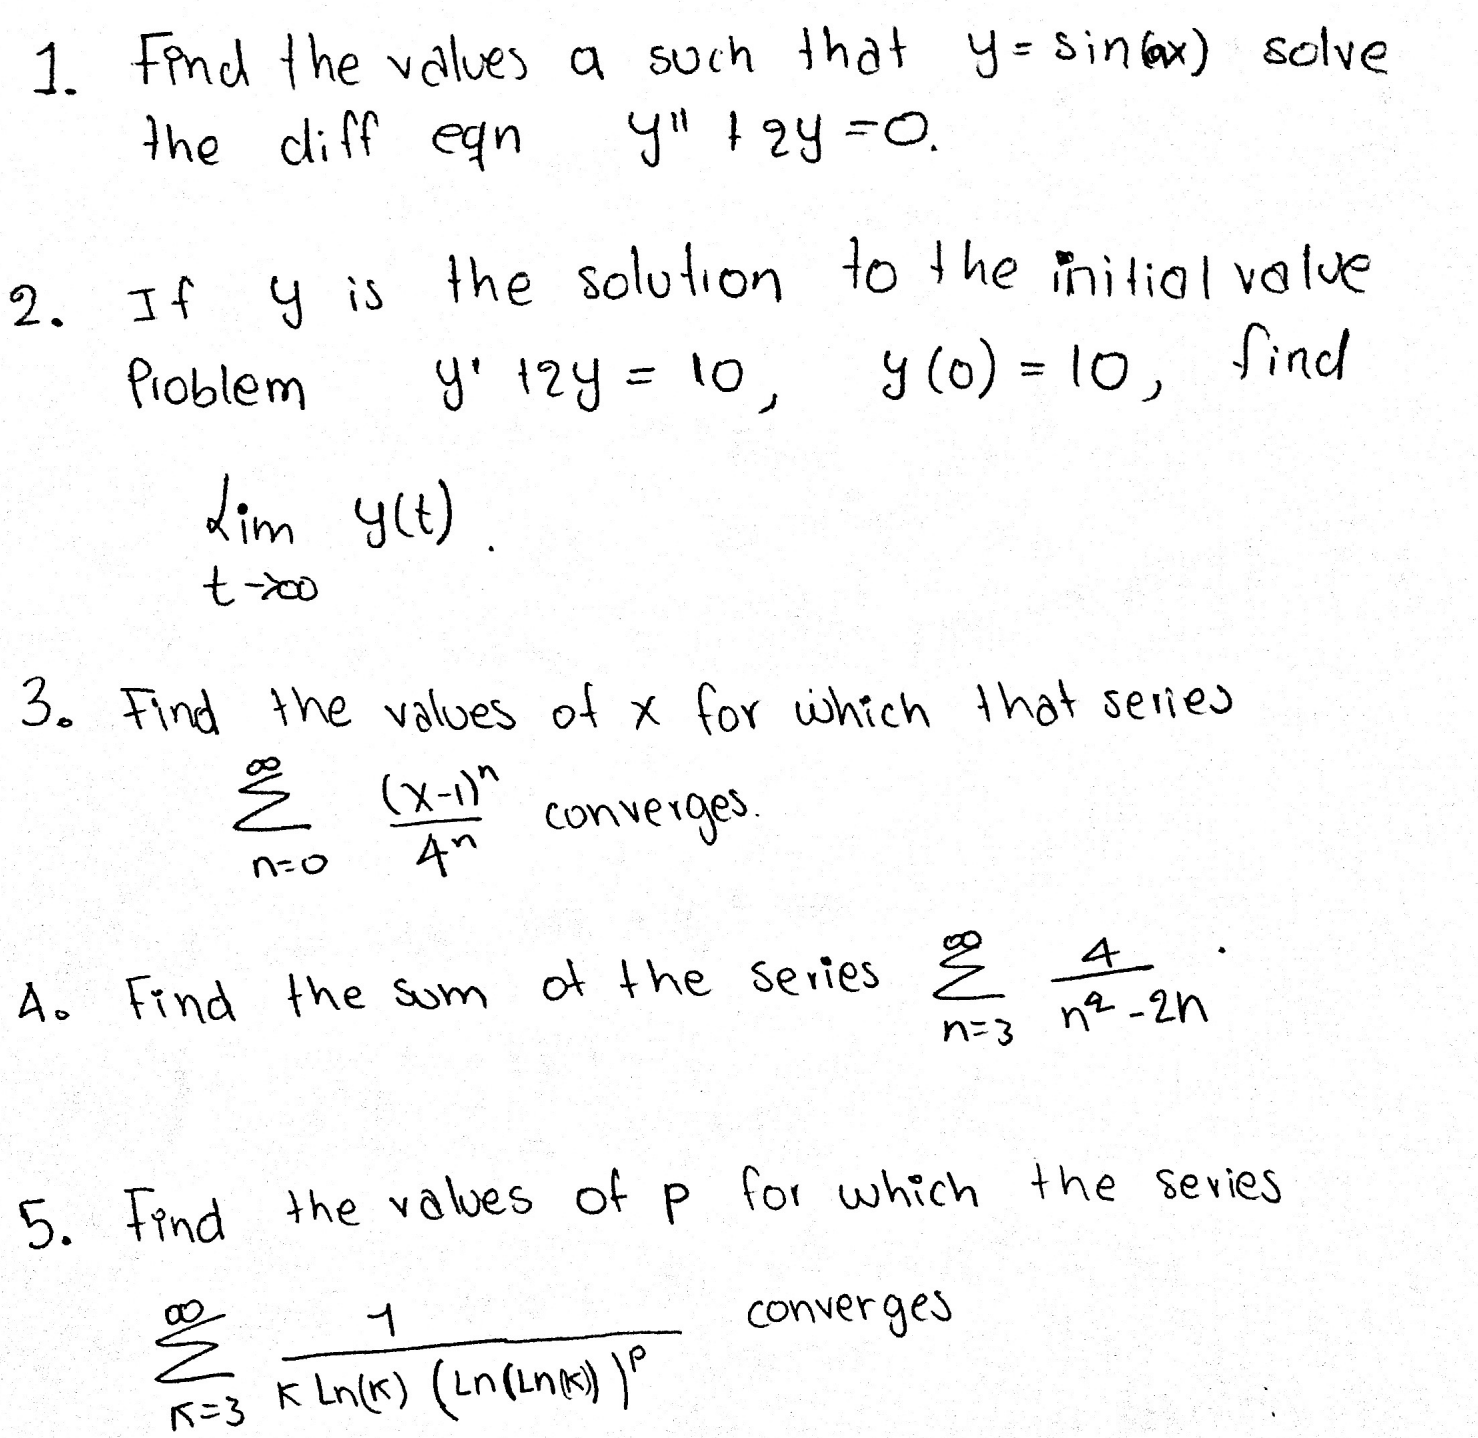 1. Find the values a such that y = sin(ax) solve
the diff eqn y'' + 2y = 0.
2. If y is the solution to the initial value
Problem y' + 2y = 10, y(0) = 10, find
Lim y(t).
t→∞
3. Find the values of x for which that series
∞ Σ n=0 (x-1)^n / 4^n converges.
4. Find the sum of the series ∞ Σ n=3 4 / n^2 - 2n.
5. Find the values of p for which the series
∞ Σ K=3 1 / K Ln(K) (Ln(Ln(K)))^p converges